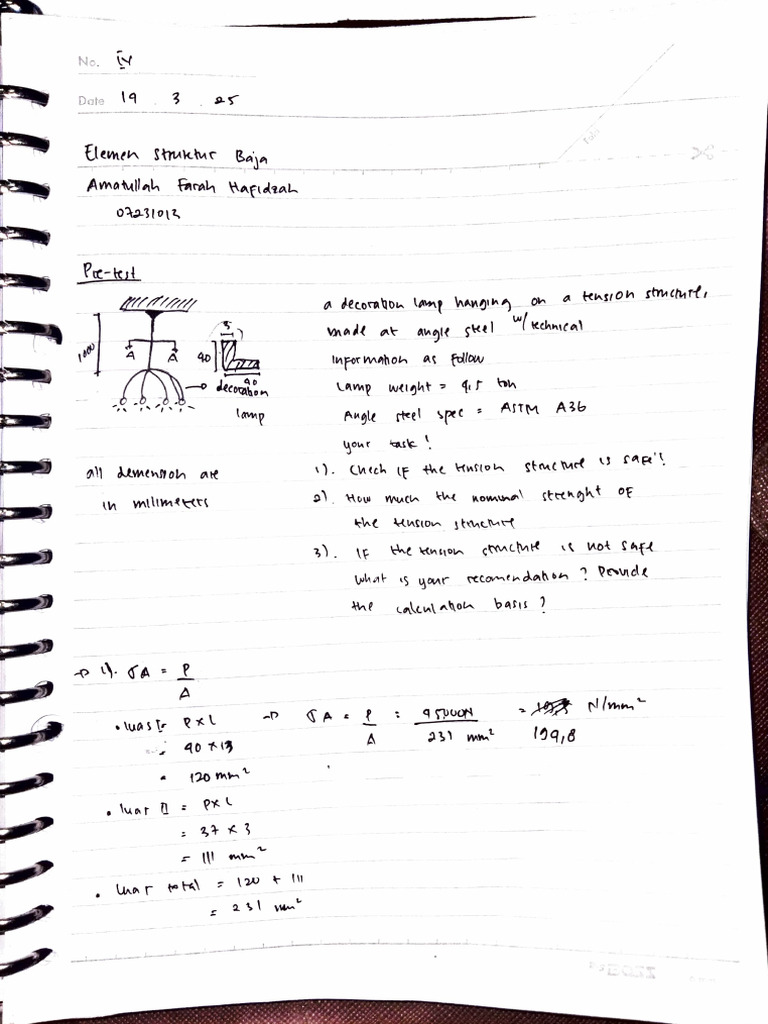 No. IV
Date 19 . 3 . 25
Elemen Struktur Baja
Amatullah Farah Hafidzah
07231013
Pre-test
1000
A A
3
40
40
decoration
lamp
all demension are
in milimeters
a decoration lamp hanging on a tension structure,
made at angle steel w/ technical
information as follow
Lamp weight = 4,5 ton
Angle steel spec = ASTM A36
your task !
1). Check if the tension structure is safe !
2). How much the nominal strenght of
the tension structure
3). IF the tension structure is not safe
what is your recomendation ? Provide
the calculation basis ?
→ 1). σA = P / A
• luas I = P x L
= 40 x 3
= 120 mm²
→ σA = P / A = 45000N / 231 mm² = 194,8 N/mm²
• luar II = P x L
= 37 x 3
= 111 mm²
• luar total = 120 + 111
= 231 mm²